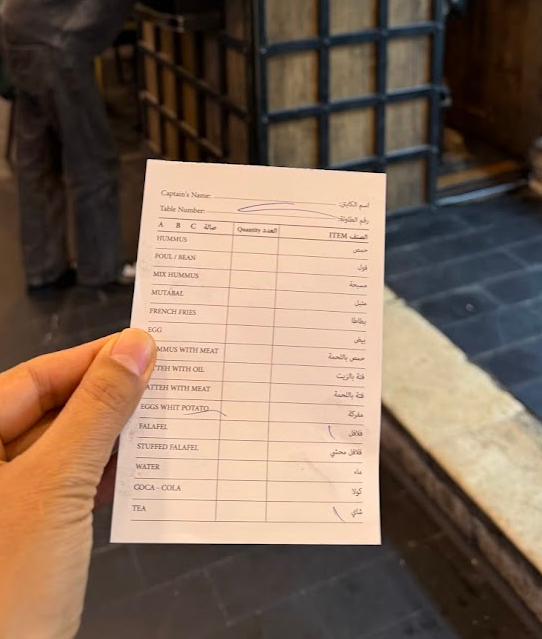 Captain's Name: اسم الكابتن:
Table Number: رقم الطاولة:
A B C صالة Quantity العدد ITEM الصنف
HUMMUS حمص
FOUL / BEAN فول
MIX HUMMUS مسبحة
MUTABAL متبل
FRENCH FRIES بطاطا
EGG بيض
MMUS WITH MEAT حمص باللحمة
TTEH WITH OIL فتة بالزيت
ATTEH WITH MEAT فتة باللحمة
EGGS WHIT POTATO مفركة
FALAFEL فلافل
STUFFED FALAFEL فلافل محشي
WATER ماء
COCA - COLA كولا
TEA شاي